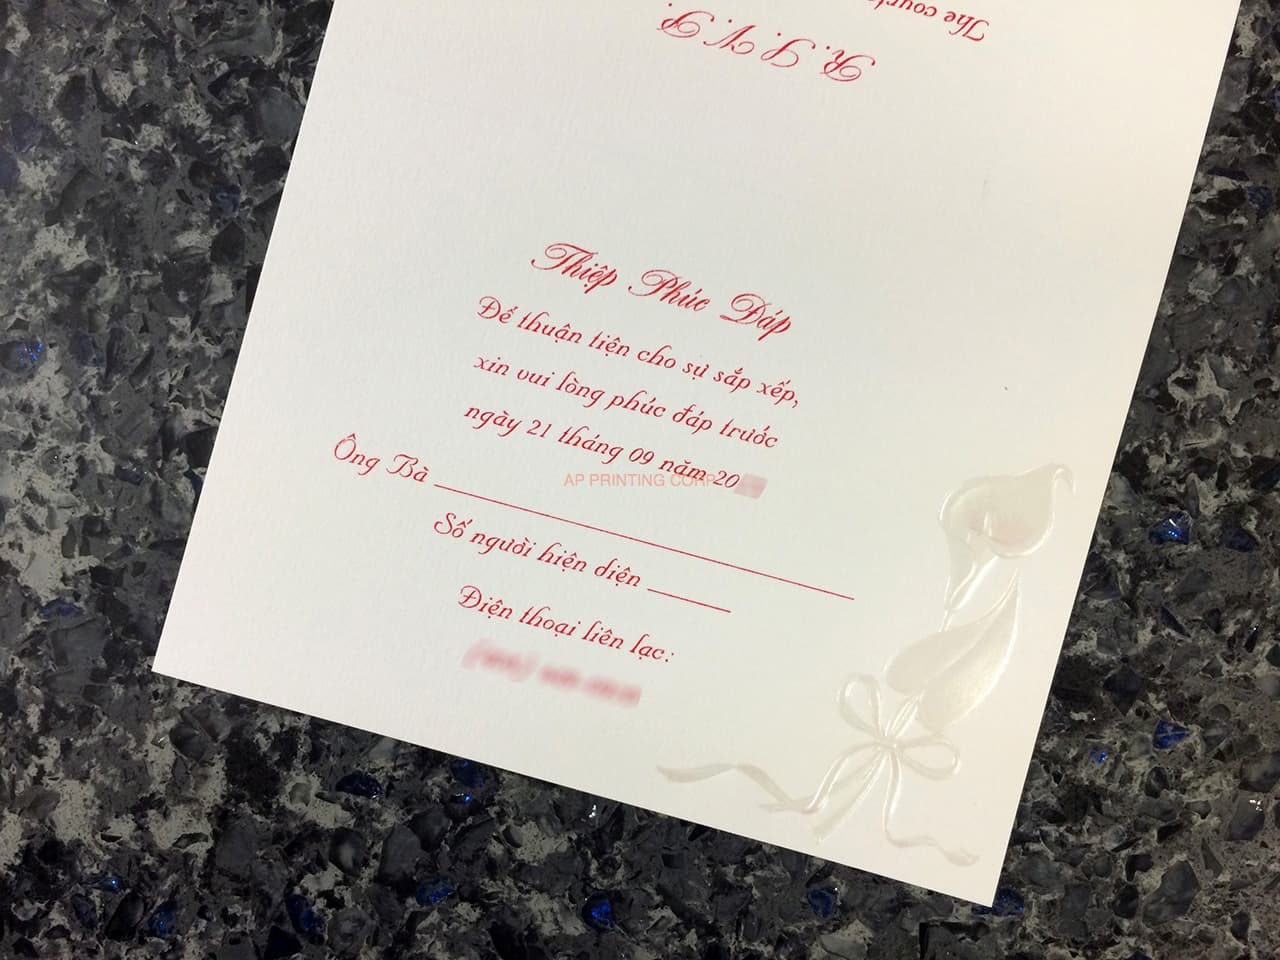 The cour
R. S. V. P.
Thiệp Phúc Đáp
Để thuận tiện cho sự sắp xếp,
xin vui lòng phúc đáp trước
ngày 21 tháng 09 năm 20
AP PRINTING CORP
Ông Bà
Số người hiện diện
Điện thoại liên lạc: